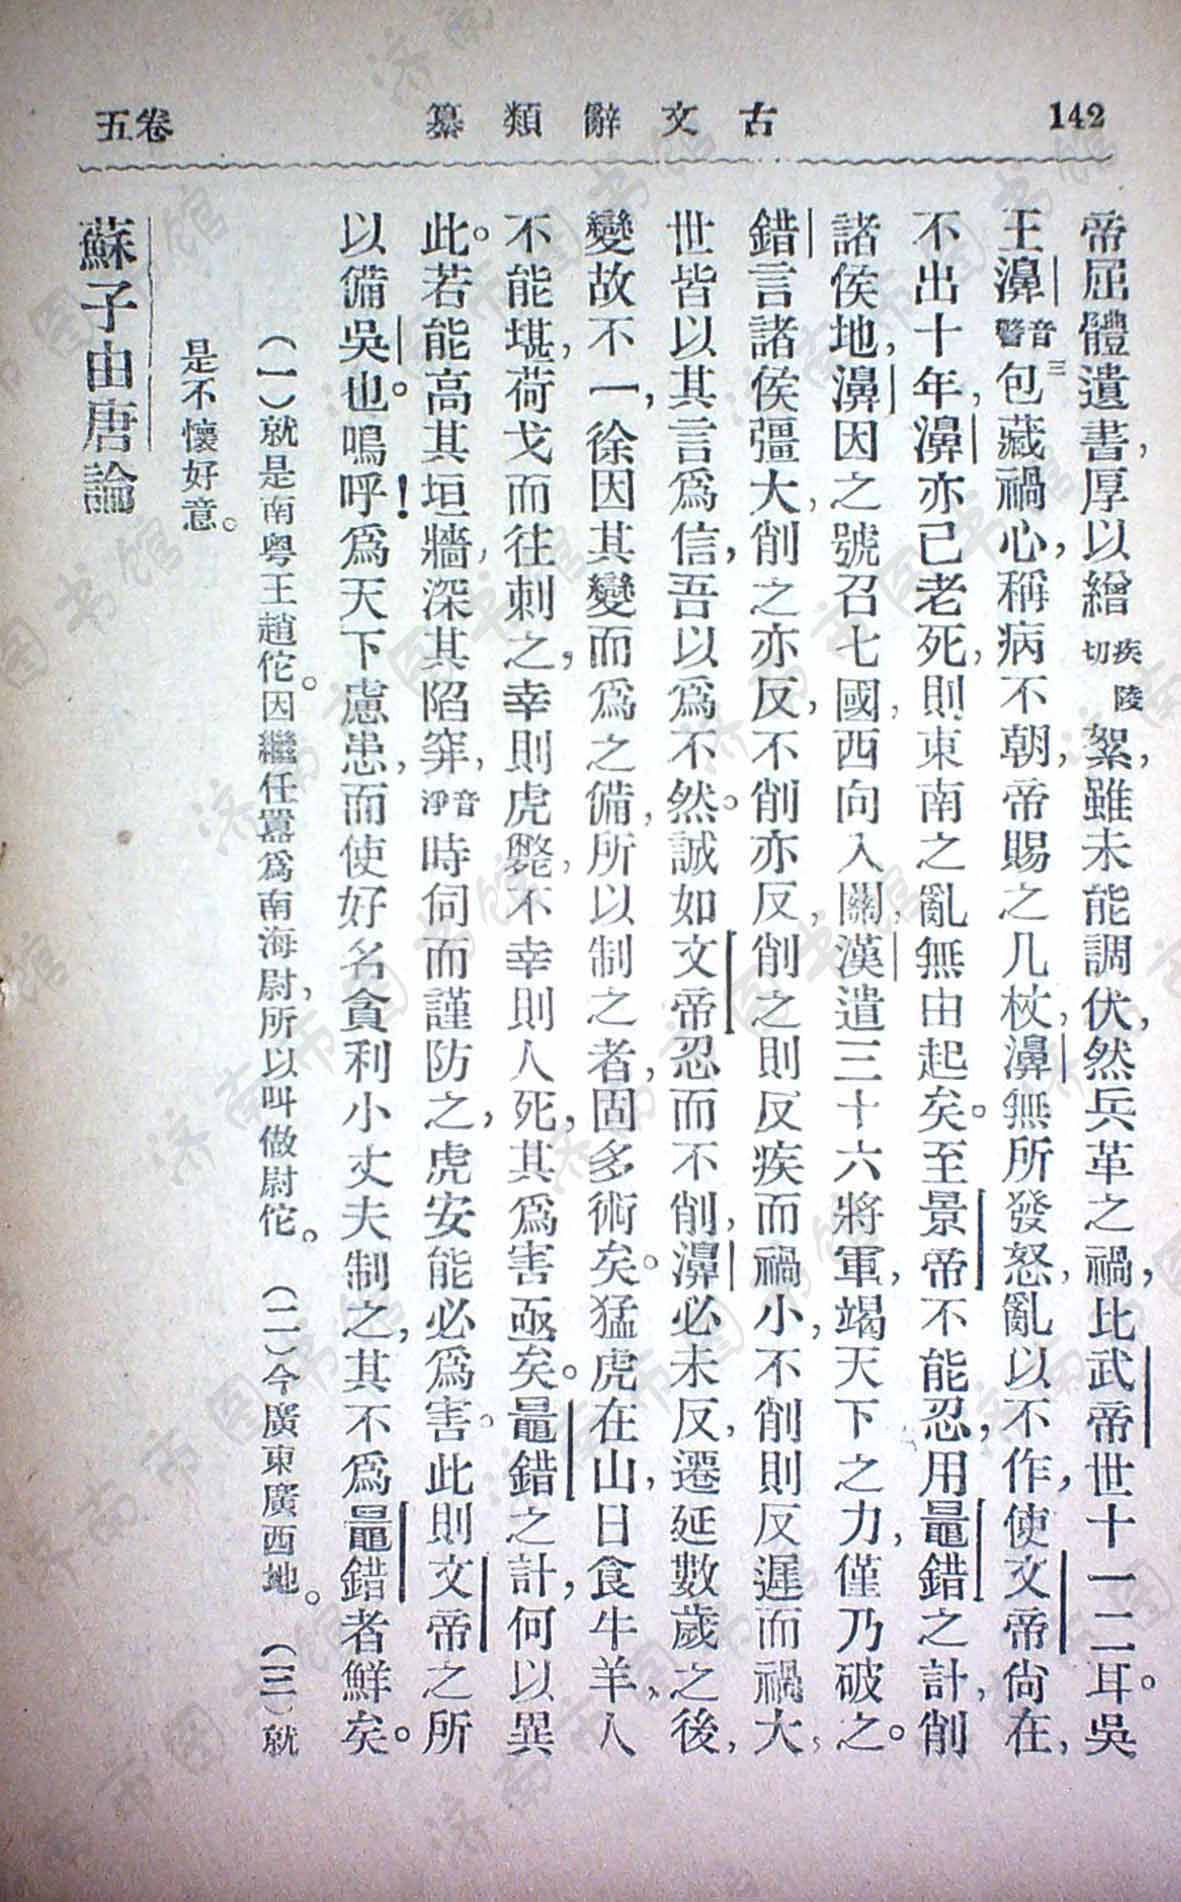 142
古文辭類纂
卷五
帝屈體遣書，厚以繒疾陵切絮，雖未能調伏，然兵革之禍，比武帝世十一二耳。吳
王濞音譬三包藏禍心，稱病不朝，帝賜之几杖，濞無所發怒，亂以不作，使文帝尙在，
不出十年，濞亦已老死，則東南之亂無由起矣。至景帝不能忍，用鼂錯之計，削
諸侯地，濞因之號召七國，西向入關，漢遣三十六將軍，竭天下之力，僅乃破之。
錯言諸侯彊大，削之亦反，不削亦反，削之則反疾而禍小，不削則反遲而禍大，
世皆以其言爲信，吾以爲不然。誠如文帝忍而不削，濞必未反，遷延數歲之後，
變故不一，徐因其變而爲之備，所以制之者，固多術矣。猛虎在山，日食牛羊，人
不能堪，荷戈而往刺之，幸則虎斃，不幸則人死，其爲害亟矣。鼂錯之計，何以異
此。若能高其垣牆，深其陷穽，音淨時伺而謹防之，虎安能必爲害。此則文帝之所
以備吳也。嗚呼！爲天下慮患，而使好名貪利小丈夫制之，其不爲鼂錯者鮮矣。
（一）就是南粤王趙佗。因繼任囂爲南海尉，所以叫做尉佗。（二）今廣東廣西地。（三）就
是不懷好意。
蘇子由唐論